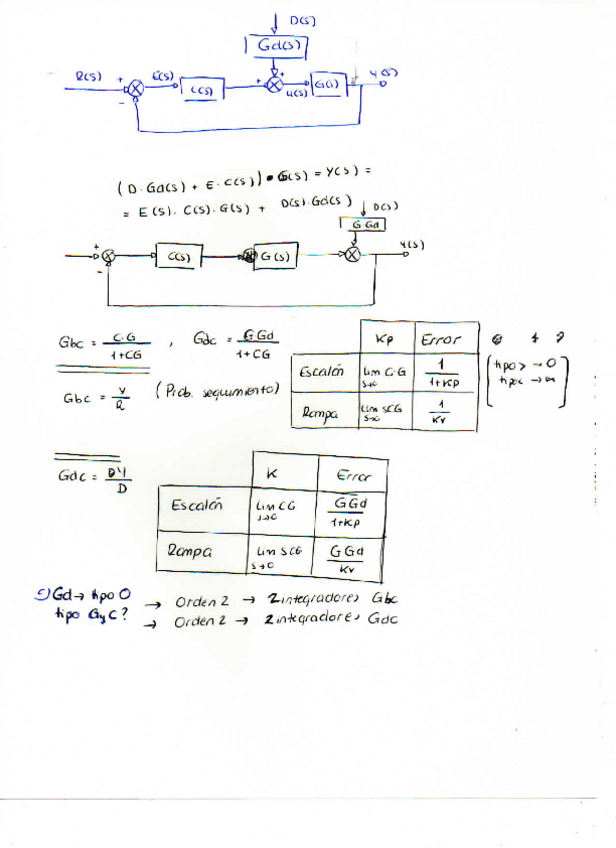 D(s)
Gd(s)
R(s) + E(s) C(s) + + U(s) G(s) Y(s)
-
(D·Gd(s) + E·C(s))·G(s) = Y(s) =
= E(s)·C(s)·G(s) + D(s)·Gd(s)
D(s)
G·Gd
+ C(s) G(s) Y(s)
-
Gbc = C·G / 1+CG , Gdc = G Gd / 1+CG
Gbc = Y / R (Prob. seguimiento)
Kp Error
Escalón lim C·G s→0 1 / 1+Kp
Rampa lim SCG s→0 1 / Kv
0 1 2
tipo > → 0
tipo < → ∞
Gdc = DY / D
K Error
Escalón lim CG s→0 G Gd / 1+Kp
Rampa lim SCG s→0 G Gd / Kv
Gd → tipo 0 → Orden 2 → 2 integradores Gbc
tipo G y C? → Orden 2 → 2 integradores Gdc